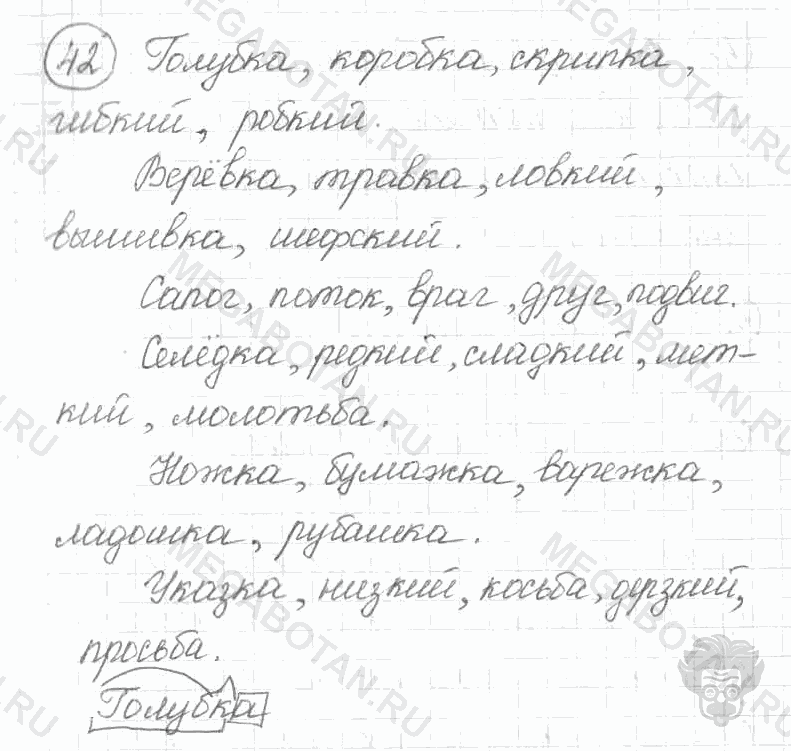 42 Голубка, коробка, скрипка,
гибкий, робкий.
Верёвка, травка, ловкий,
вышивка, шефский.
Сапог, поток, враг, друг, подвиг.
Селёдка, редкий, сладкий, мет-
кий, молотьба.
Ножка, бумажка, варежка,
ладошка, рубашка.
Указка, низкий, косьба, дерзкий,
просьба.
Голубка
MEGABOTAN.RU